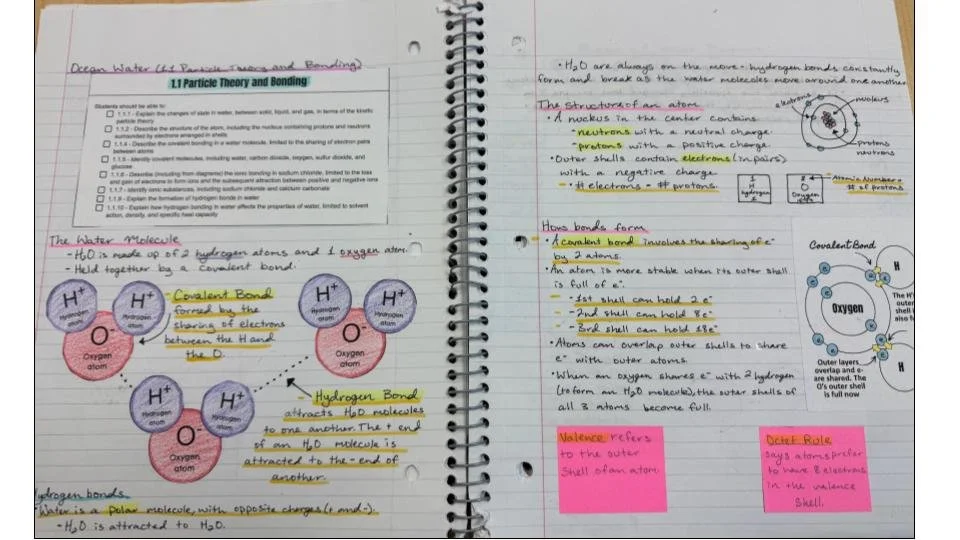 Ocean Water (1.1 Particle Theory and Bonding)
1.1 Particle Theory and Bonding
Students should be able to:
1.1.1 - Explain the changes of state in water, between solid, liquid, and gas, in terms of the kinetic
particle theory
1.1.2 - Describe the structure of the atom, including the nucleus containing protons and neutrons
surrounded by electrons arranged in shells
1.1.4 - Describe the covalent bonding in a water molecule, limited to the sharing of electron pairs
between atoms
1.1.5 - Identify covalent molecules, including water, carbon dioxide, oxygen, sulfur dioxide, and
glucose
1.1.6 - Describe (including from diagrams) the ionic bonding in sodium chloride, limited to the loss
and gain of electrons to form ions and the subsequent attraction between positive and negative ions
1.1.7 - Identify ionic substances, including sodium chloride and calcium carbonate
- Explain the formation of hydrogen bonds in water
1.1.10 - Explain how hydrogen bonding in water affects the properties of water, limited to solvent
action, density, and specific heat capacity
The Water Molecule
- H₂O is made up of 2 hydrogen atoms and 1 oxygen atom.
- Held together by a covalent bond.
H+
Hydrogen
atom
H+
Hydrogen
atom
O-
Oxygen
atom
- Covalent Bond
formed by the
sharing of electrons
between the H and
the O.
H+
Hydrogen
atom
H+
Hydrogen
atom
O-
Oxygen
atom
H+
Hydrogen
atom
H+
Hydrogen
atom
O-
Oxygen
atom
- Hydrogen Bond
attracts H₂O molecules
to one another. The + end
of an H₂O molecule is
attracted to the - end of
another.
ydrogen bonds
Water is a polar molecule, with opposite charges (+ and -).
- H₂O is attracted to H₂O.
• H₂O are always on the move - hydrogen bonds constantly
form and break as the water molecules move around one another
The Structure of an atom
• A nucleus in the center contains
- neutrons with a neutral charge.
- protons with a positive charge.
• Outer shells contain electrons (in pairs)
with a negative charge
• # electrons = # protons.
electrons
nucleus
protons
neutrons
1
H
hydrogen
8
O
Oxygen
Atomic Number =
# of protons
How bonds form
• A covalent bond involves the sharing of e⁻
by 2 atoms.
• An atom is more stable when its outer shell
is full of e⁻.
- 1st shell can hold 2 e⁻
- 2nd shell can hold 8 e⁻
- 3rd shell can hold 18 e⁻
• Atoms can overlap outer shells to share
e⁻ with outer atoms.
• When an oxygen shares e⁻ with 2 hydrogen
(to form an H₂O molecule), the outer shells of
all 3 atoms become full.
Covalent Bond
H
Oxygen
The H'
outer
shell i
also f
H
Outer layers
overlap and e-
are shared. The
O's outer shell
is full now
Valence refers
to the outer
shell of an atom.
Octet Rule
says atoms prefer
to have 8 electrons
in the valence
shell.